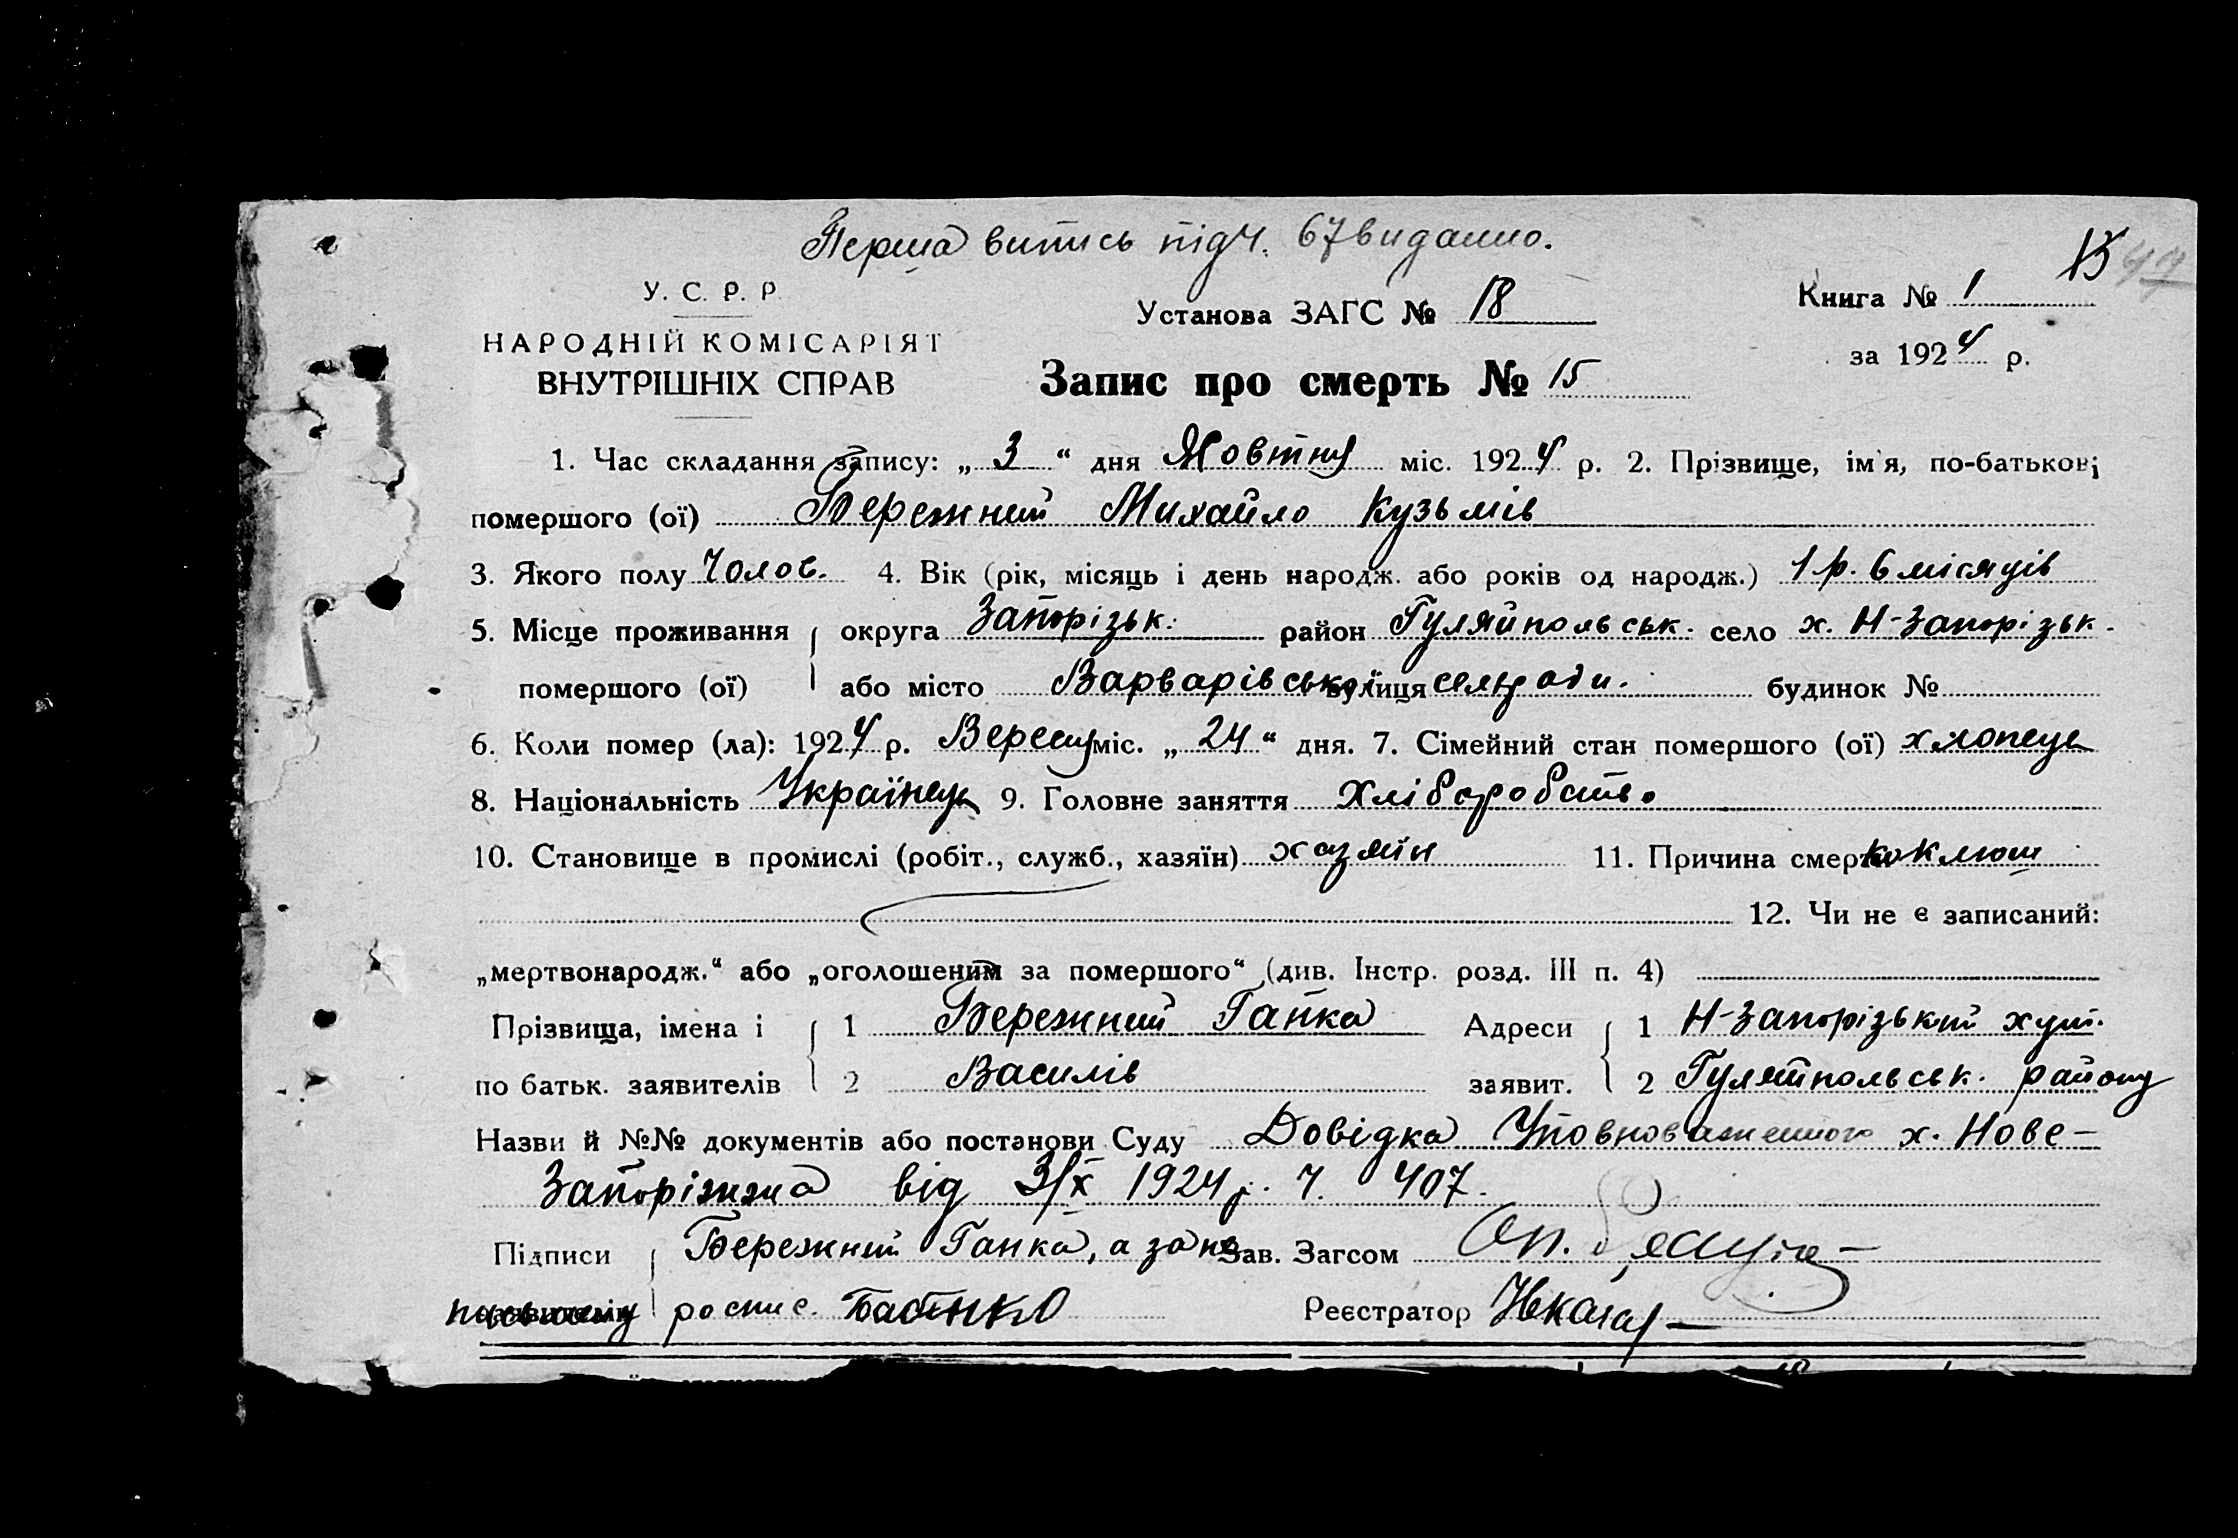 Перша витись під ч. 67 видацно.
15 47
У. С. Р. Р.
НАРОДНІЙ КОМІСАРІЯТ
ВНУТРІШНІХ СПРАВ
Установа ЗАГС № 18
Книга № 1
за 1924 р.
Запис про смерть № 15
1. Час складання запису: „ 3 “ дня Жовтня міс. 1924 р. 2. Прізвище, ім'я, по-батькові
помершого (ої) Бережний Михайло Кузьмів
3. Якого полу Чолов. 4. Вік (рік, місяць і день народж. або років од народж.) 1 р. 6 місяців
5. Місце проживання округа Запорізьк. район Гуляйпольськ. село х. Н-Запорізьк.
помершого (ої) або місто Варварівської вулиця сельради. будинок №
6. Коли помер (ла): 1924 р. Вересня міс. „ 24 “ дня. 7. Сімейний стан помершого (ої) хлопець
8. Національність Українець 9. Головне заняття Хліборобство
10. Становище в промислі (робіт., служб., хазяїн) хазяїн 11. Причина смерти коклюш
12. Чи не є записаний:
„мертвонародж.“ або „оголошеним за помершого“ (див. Інстр. розд. III п. 4)
Прізвища, імена і 1 Бережний Гапка Адреси 1 Н-Запорізький хут.
по батьк. заявителів 2 Василів заявит. 2 Гуляйпольськ. району
Назви й №№ документів або постанови Суду Довідка Уповноваженного х. Нове-
Запоріжжа від 3/X 1924 р. ч. 407.
Підписи Бережний Гапка, а за не Зав. Загсом
письмену роспис. Бабенко Реєстратор